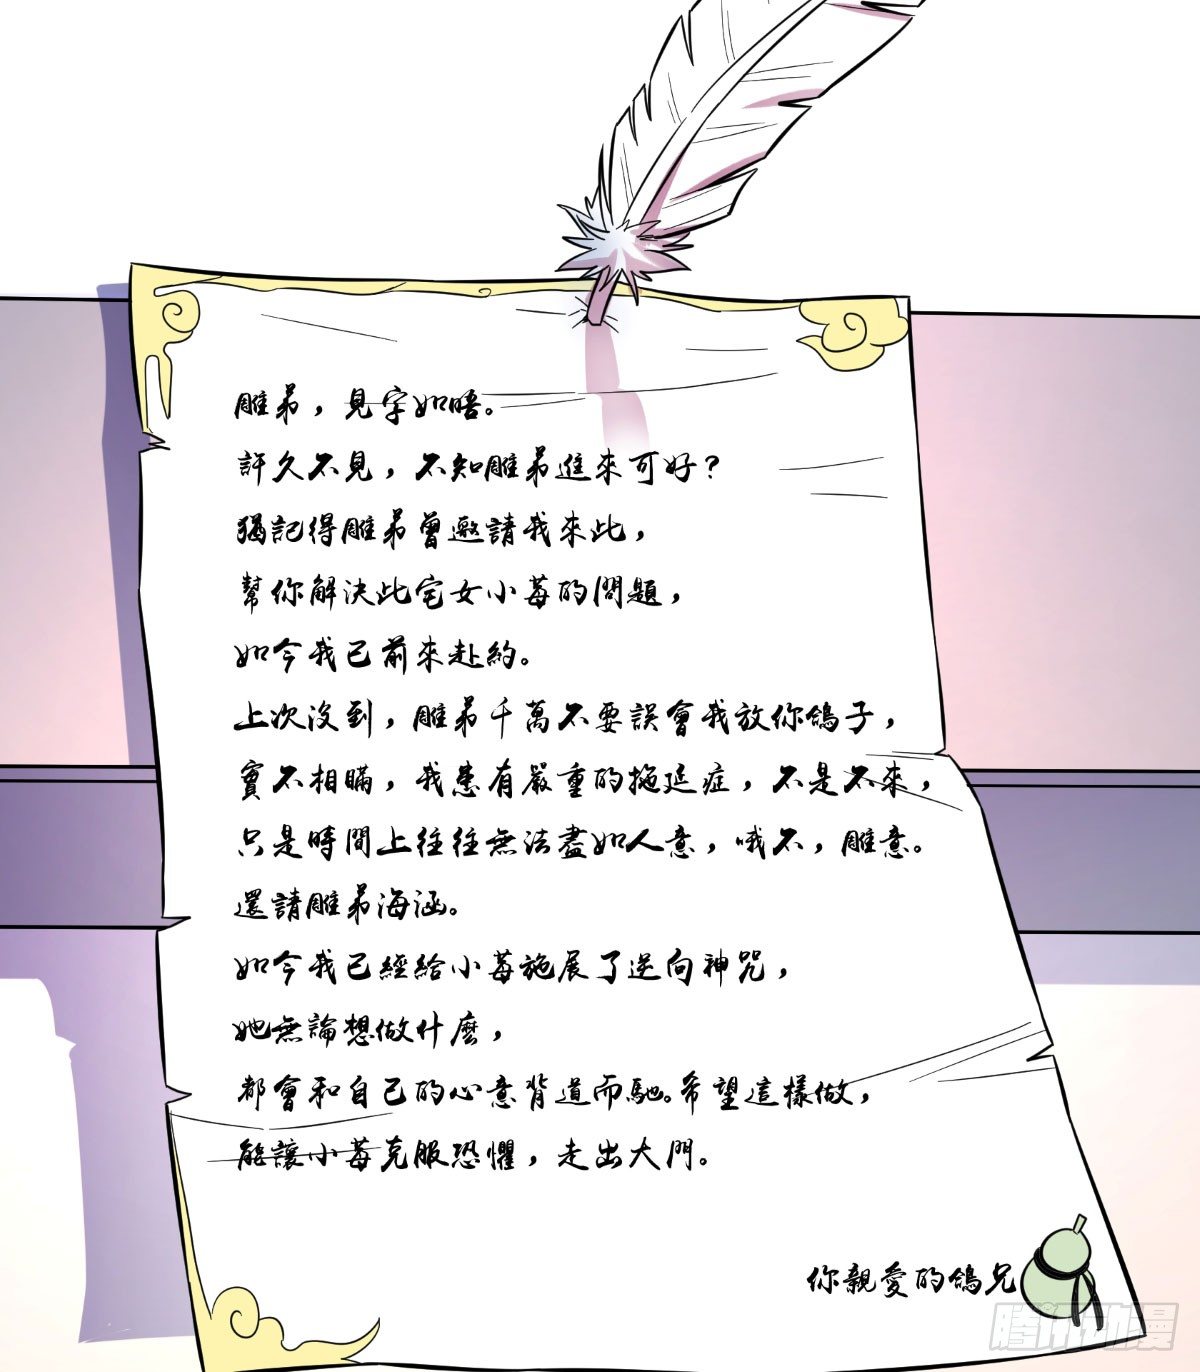 雕弟，見字如晤。
許久不見，不知雕弟進來可好？
猶記得雕弟曾邀請我來此，
幫你解決此宅女小莓的問題，
如今我已前來赴約。
上次沒到，雕弟千萬不要誤會我放你鴿子，
實不相瞞，我患有嚴重的拖延症，不是不來，
只是時間上往往無法盡如人意，哦不，雕意。
還請雕弟海涵。
如今我已經給小莓施展了逆向神咒，
她無論想做什麼，
都會和自己的心意背道而馳。希望這樣做，
能讓小莓克服恐懼，走出大門。
你親愛的鴿兄
騰訊动漫